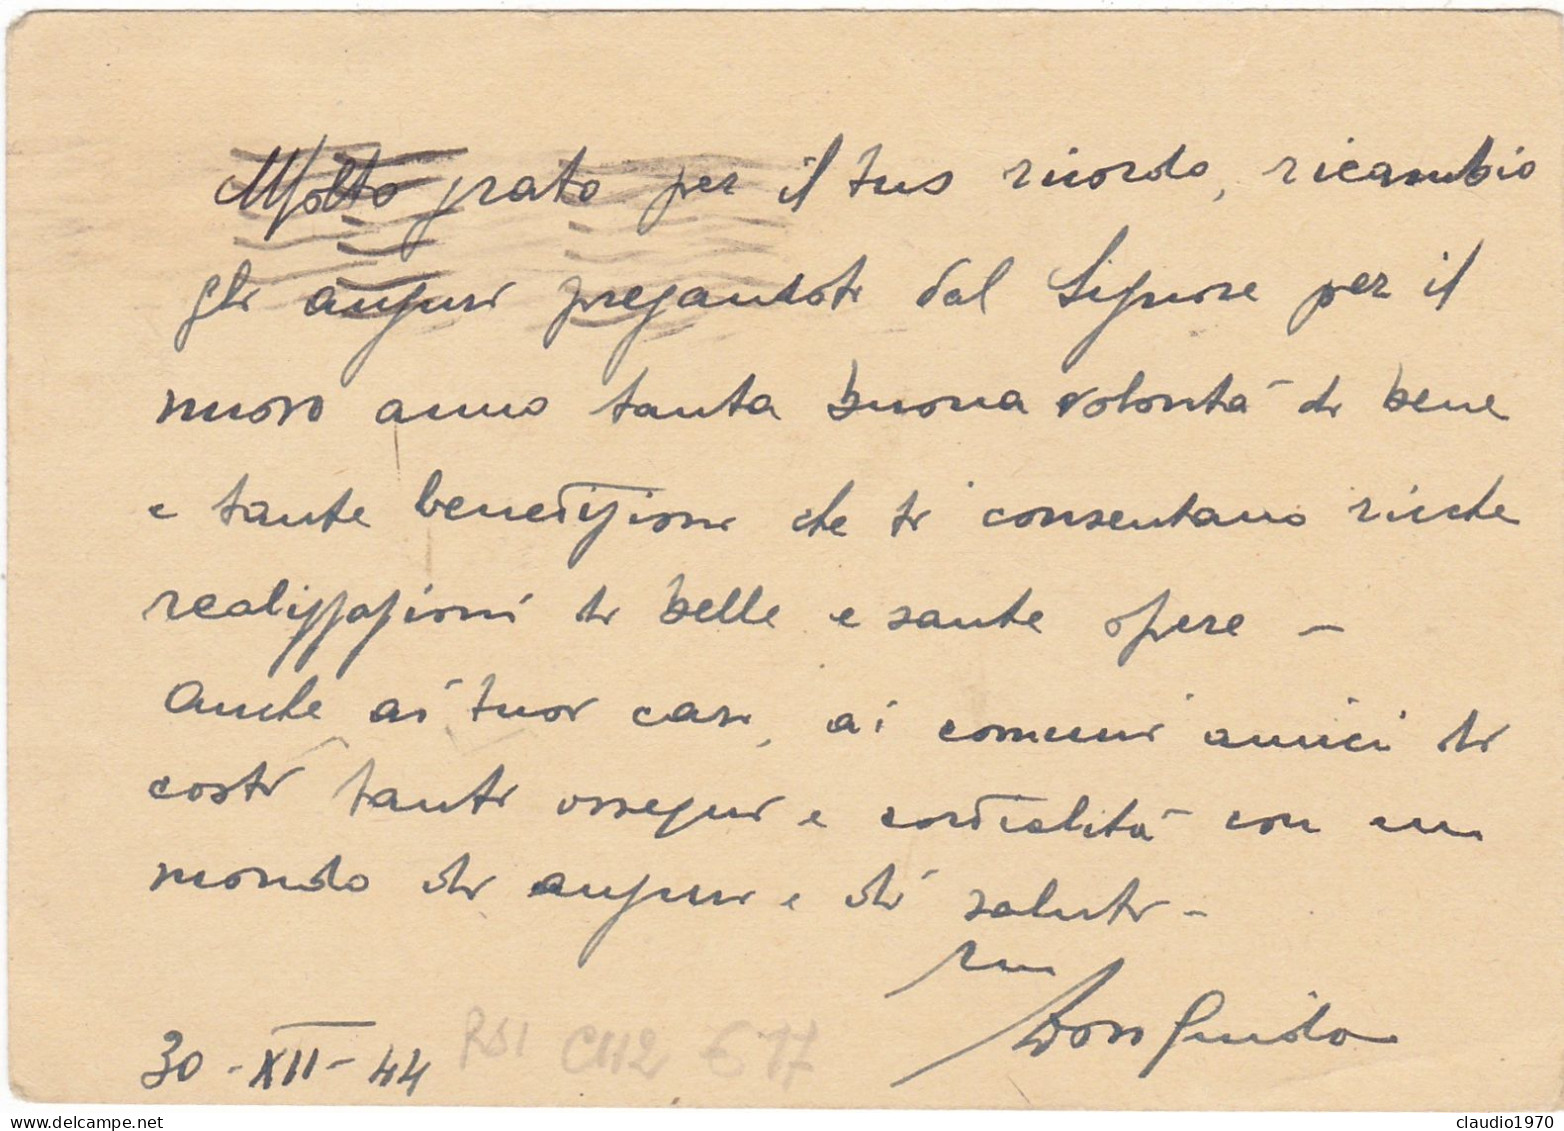 Molto grato per il tuo ricordo, ricambio
gli auguri pregandoti dal Signore per il
nuovo anno tanta buona volontà di bene
e tante benedizioni che ti consentano ricche
realizzazioni di belle e sante opere -
Anche ai tuoi cari, ai comuni amici di
costì tanti ossequi e cordialità con un
mondo di auguri e di saluti -
Don Guido
30 - XII - 44
RSI C112 € 17
www.delcampe.net
claudio1970